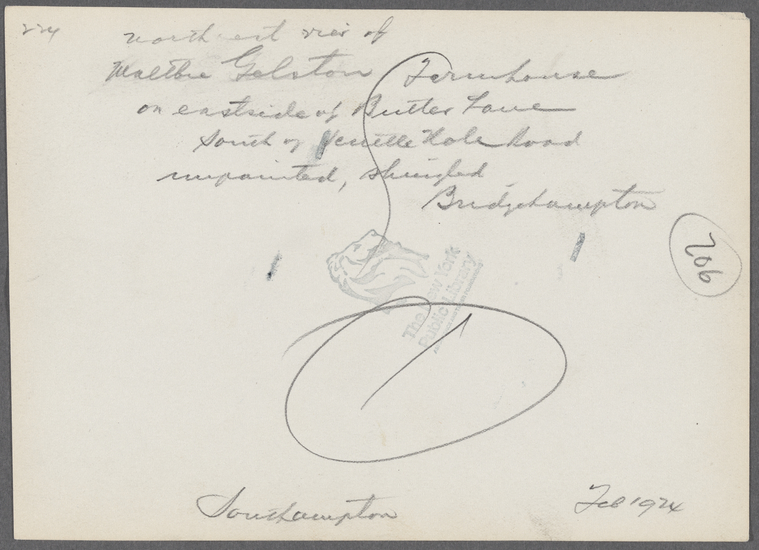 224
north east view of
Maltbie Gelston Farmhouse
on eastside of Butter Lane
South of Hole Road
unpainted, shingled
Bridgehampton
706
The New York
Public Library
1
Southampton
Feb 1924